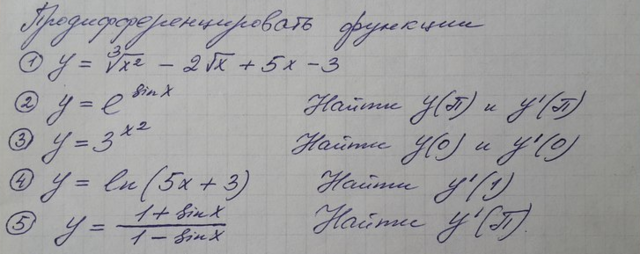 Продифференцировать функции
① y = ∛x² - 2√x + 5x - 3
② y = e^sinx Найти y(π) и y'(π)
③ y = 3^x² Найти y(0) и y'(0)
④ y = ln(5x + 3) Найти y'(1)
⑤ y = (1 + sinx)/(1 - sinx) Найти y'(π).